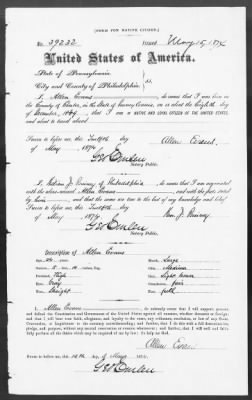 [FORM FOR NATIVE CITIZEN.]
No. 39232 Issued May 15, 1874
United States of America.
State of Pennsylvania
City and County of Philadelphia } ss.
I, Allen Evans, do swear that I was born in the
County of in the State of on or about the day
of December, 1849; that I am a NATIVE AND LOYAL CITIZEN OF THE UNITED STATES,
and about to travel abroad
Sworn to before me, this Twelfth day
of May, 1874
Allen Evans
Notary Public.
I, William J. of Philadelphia, do swear that I am acquainted
with the above-named Allen Evans, and with the facts stated
by him, and that the same are true to the best of my knowledge and belief.
Sworn to before me, this Twelfth day
of May, 1874
Wm. J.
Notary Public.
Description of Allen Evans
Age, 24 years. Mouth, Large
Stature, 5 ft. 10 inches, Eng. Chin, Medium
Forehead, High Hair, Light brown
Eyes, Gray Complexion, fair
Nose, Straight Face,
I, Allen Evans, do solemnly swear that I will support, protect, and
defend the Constitution and Government of the United States against all enemies, whether domestic or foreign;
and that I will bear true faith, allegiance, and loyalty to the same, any ordinance, resolution, or law of any State,
Convention, or Legislature to the contrary notwithstanding; and further, that I do this with a full determination,
pledge, and purpose, without any mental reservation or evasion whatsoever; and further, that I will well and faith-
fully perform all the duties which may be required of me by law: So help me God.
Allen Evans
Sworn to before me, this 12th day of May, 1874.